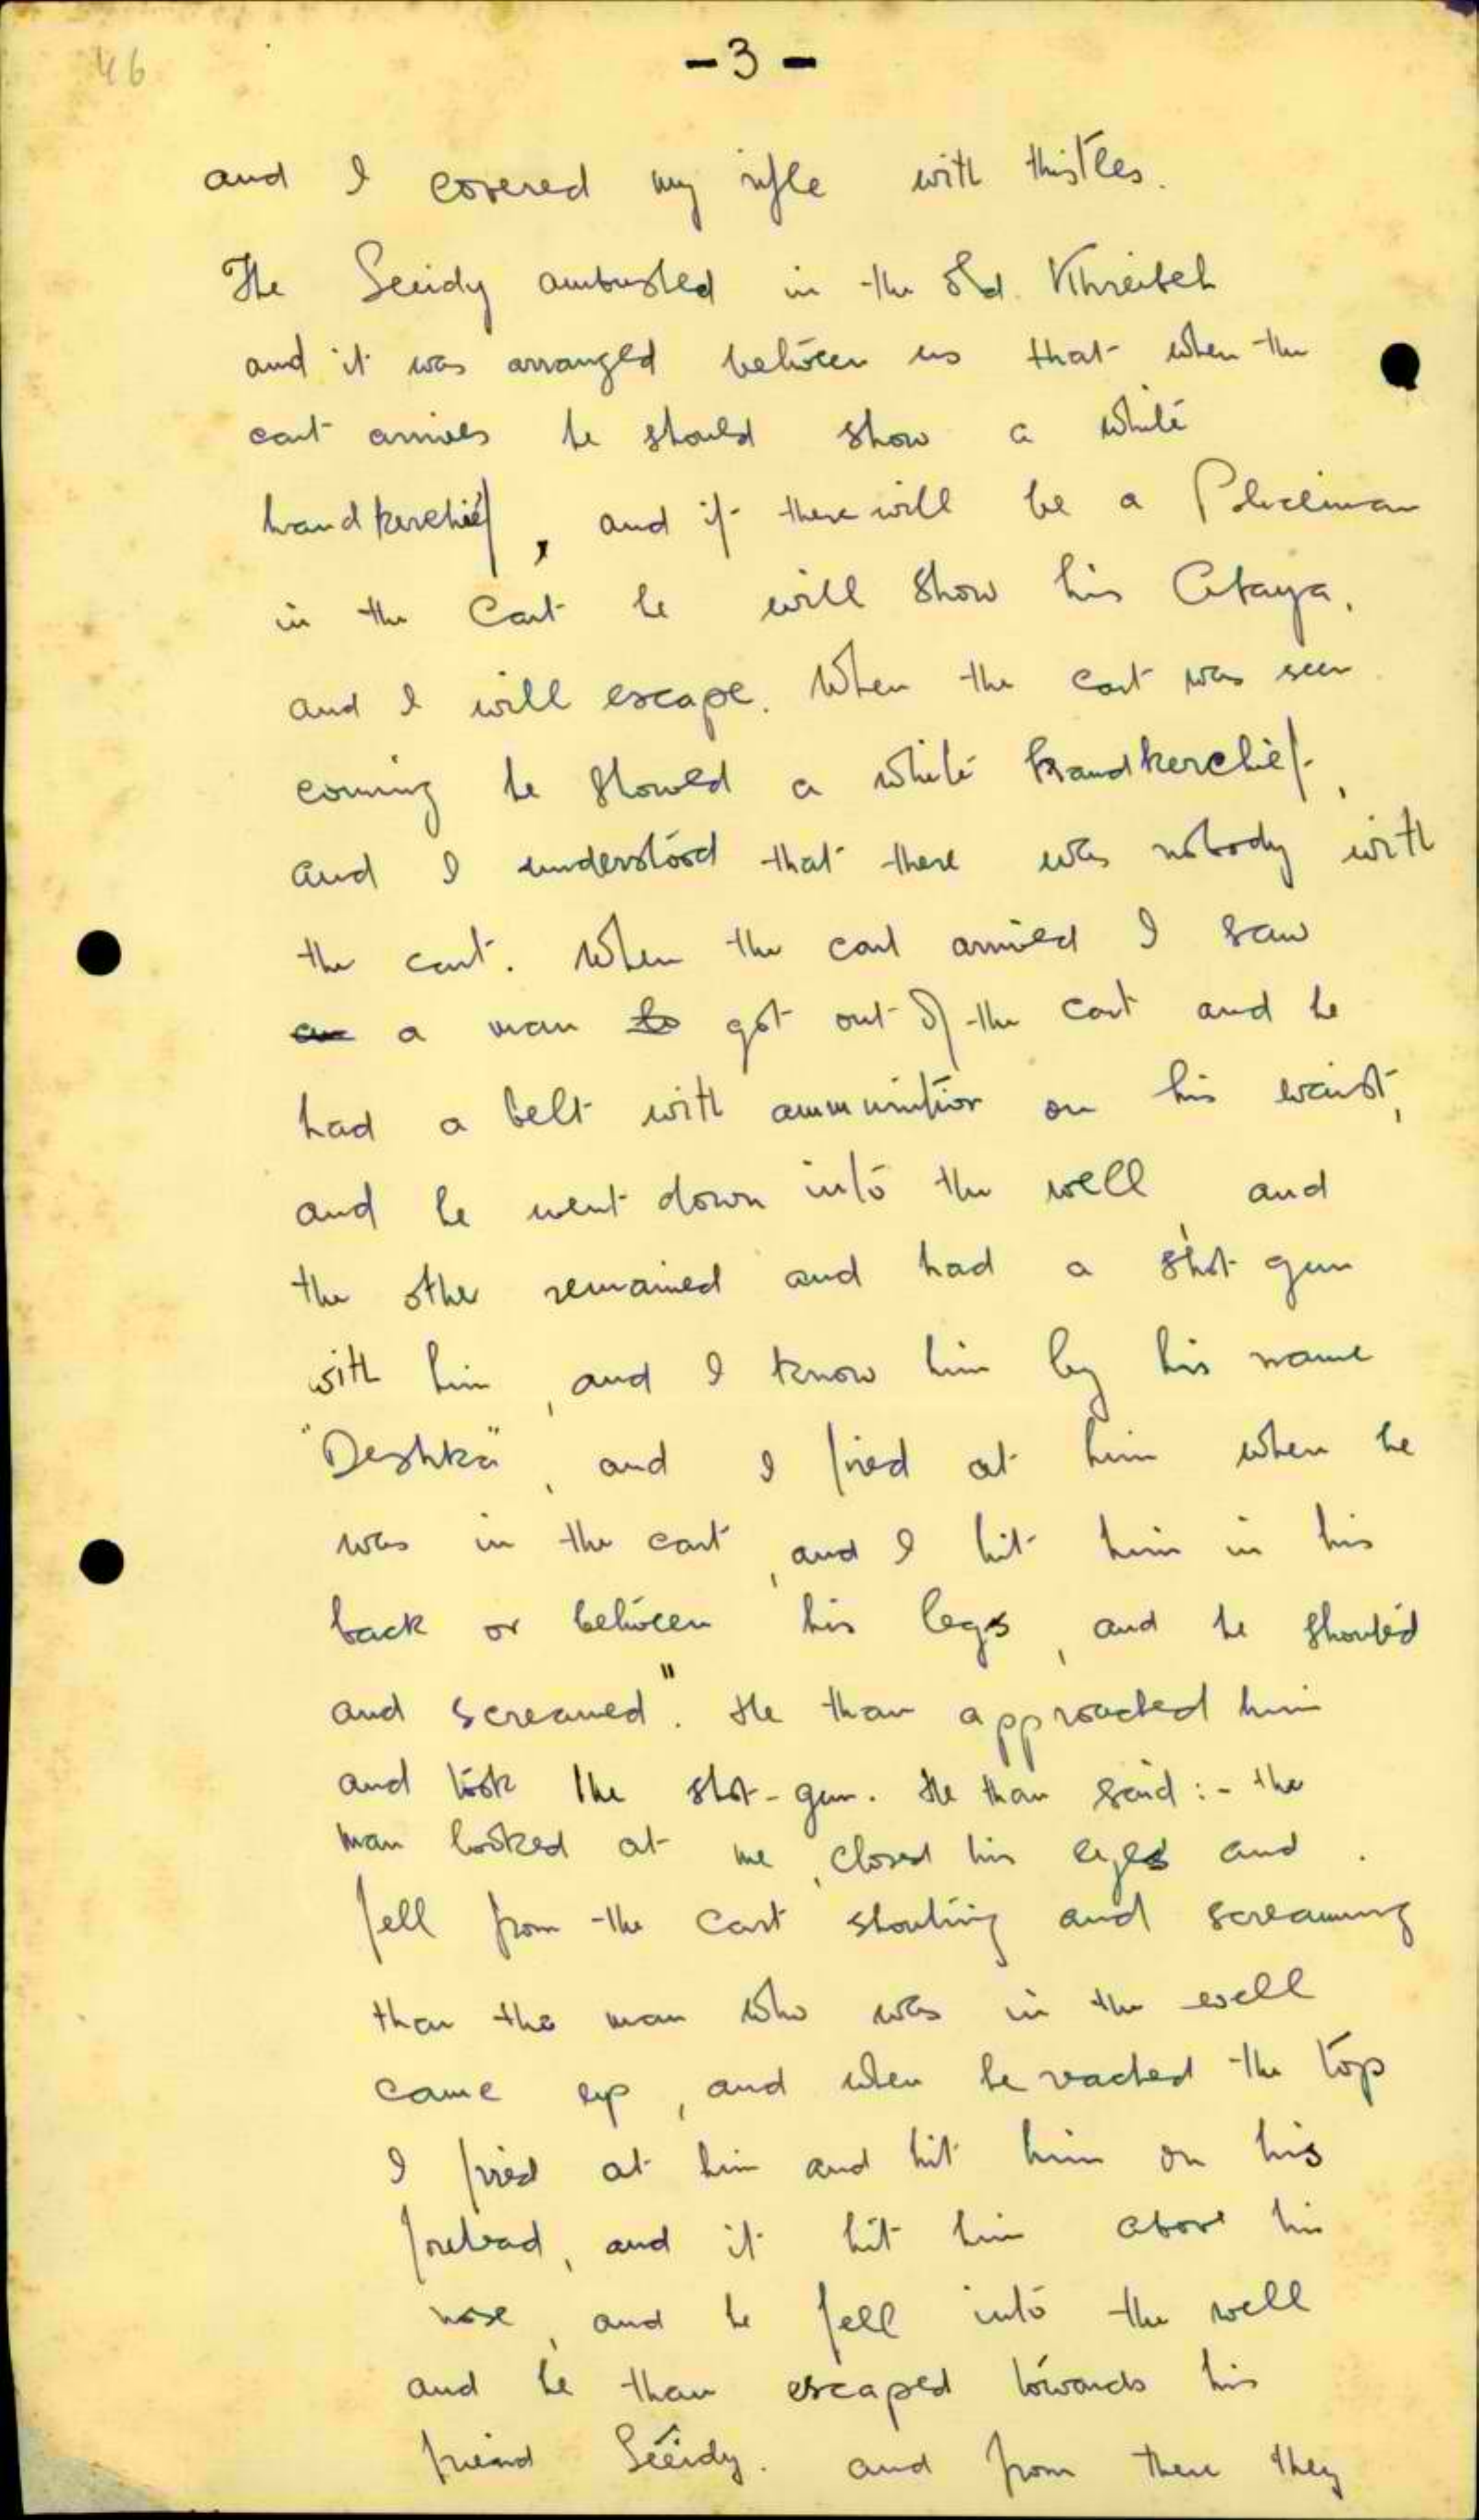 46
-3-
and I covered my rifle with thistles.
The Seiidy ambushed in the old Khreibeh
and it was arranged between us that when the
cart arrives he should show a white
handkerchief, and if there will be a Policeman
in the Cart he will show his Abaya,
and I will escape. When the cart was seen
coming he showed a white handkerchief,
and I understood that there was nobody with
the cart. When the cart arrived I saw
a man got out of the cart and he
had a belt with ammunition on his waist,
and he went down into the well, and
the other remained and had a shot gun
with him, and I know him by his name
"Deshka", and I fired at him when he
was in the cart, and I hit him in his
back or between his legs, and he shouted
and screamed". He than approached him
and took the shot-gun. He than said:- the
man looked at me, closed his eyes and
fell from the cart shouting and screaming
than the man who was in the well
came up, and when he reached the top
I fired at him and hit him on his
forehead, and it hit him above his
nose, and he fell into the well
and he than escaped towards his
friend Seiidy. and from there they